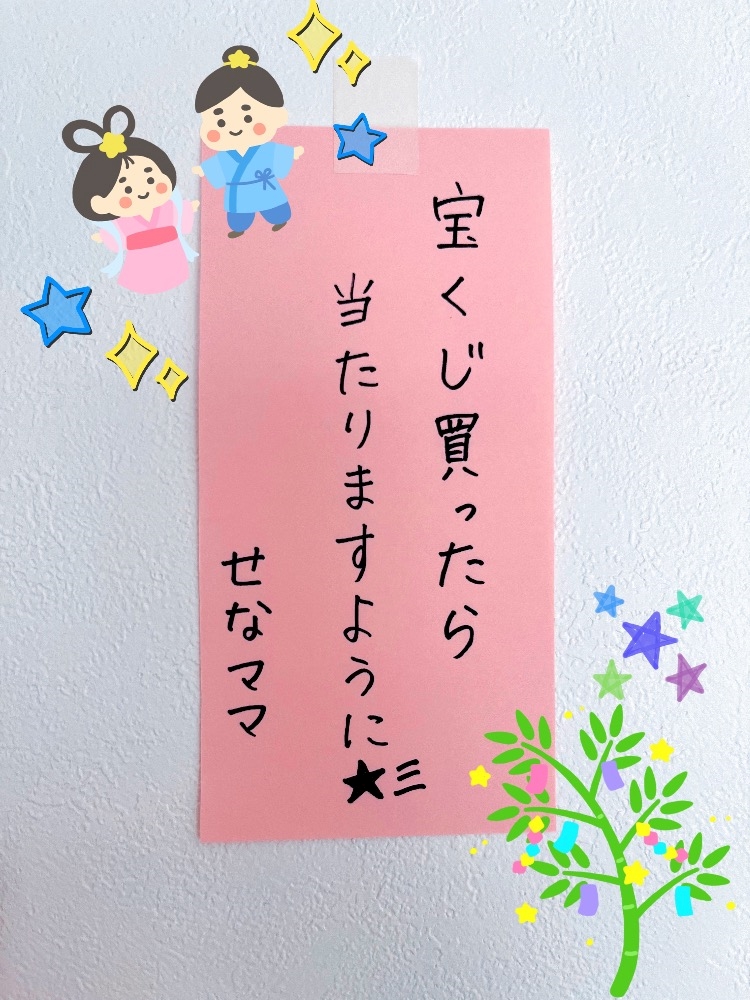 宝くじ買ったら
当たりますように★三
せなママ